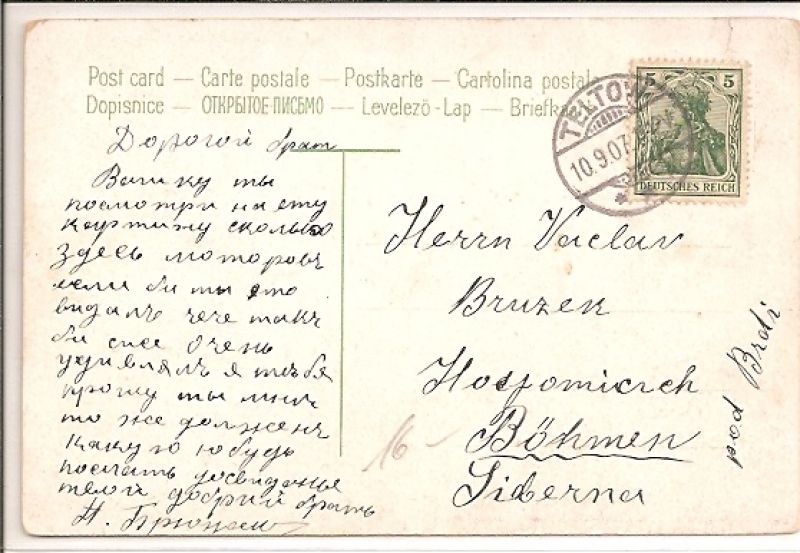 Post card — Carte postale — Postkarte — Cartolina postale
Dopisnice — ОТКРЫТОЕ ПИСЬМО — Levelező-Lap — Briefka
TELTOW
10.9.07
5 5
DEUTSCHES REICH
Дорогой брат
Вашку ты
посмотри на ету
картину сколько
здесь моторовъ
если би ты ето
видалъ чече такъ
би сие очень
удивлялъ я тебя
прошу ты мнъ
то же долженъ
какую нюбудь
послать досвиданье
твой добрий братъ
Herrn Vaclav
Bruzek
Hostomicich
Böhmen
Siberna
pod Brdi
16 —